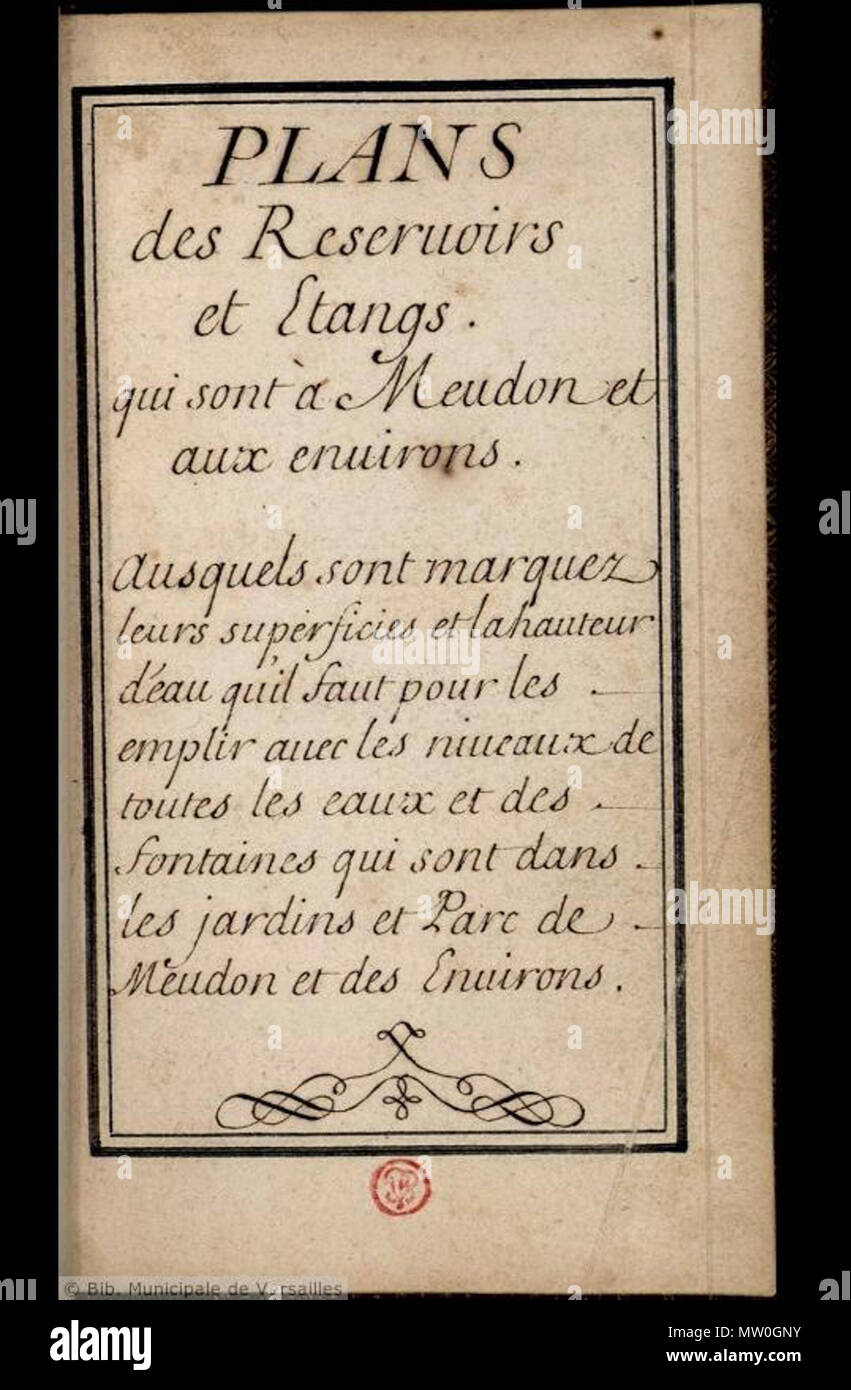 PLANS
des Reseruoirs
et Etangs.
qui sont à Meudon et
aux enuirons.
Ausquels sont marquez
leurs superficies et la hauteur
d'eau qu'il faut pour les
emplir auec les niueaux de
toutes les eaux et des
fontaines qui sont dans
les jardins et Parc de
Meudon et des Enuirons.
© Bib. Municipale de Versailles
alamy
Image ID: MW0GNY
www.alamy.com